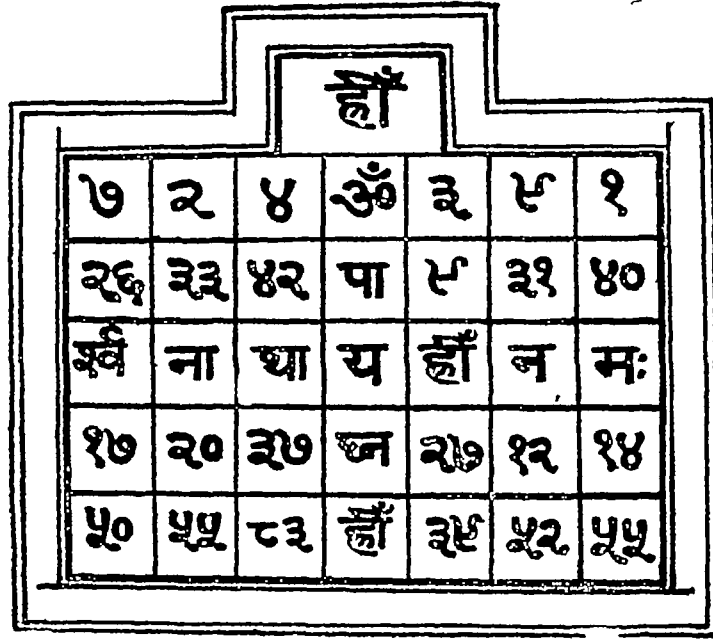 ह्रीं
७ २ ४ ॐ ३ ९ १
२६ ३३ ४२ पा ९ ३१ ४०
र्श्व ना था य ह्रीं न मः
१७ २० ३७ २७ १२ १४
५० ५५ ८३ ह्रीं ३९ ५२ ५५